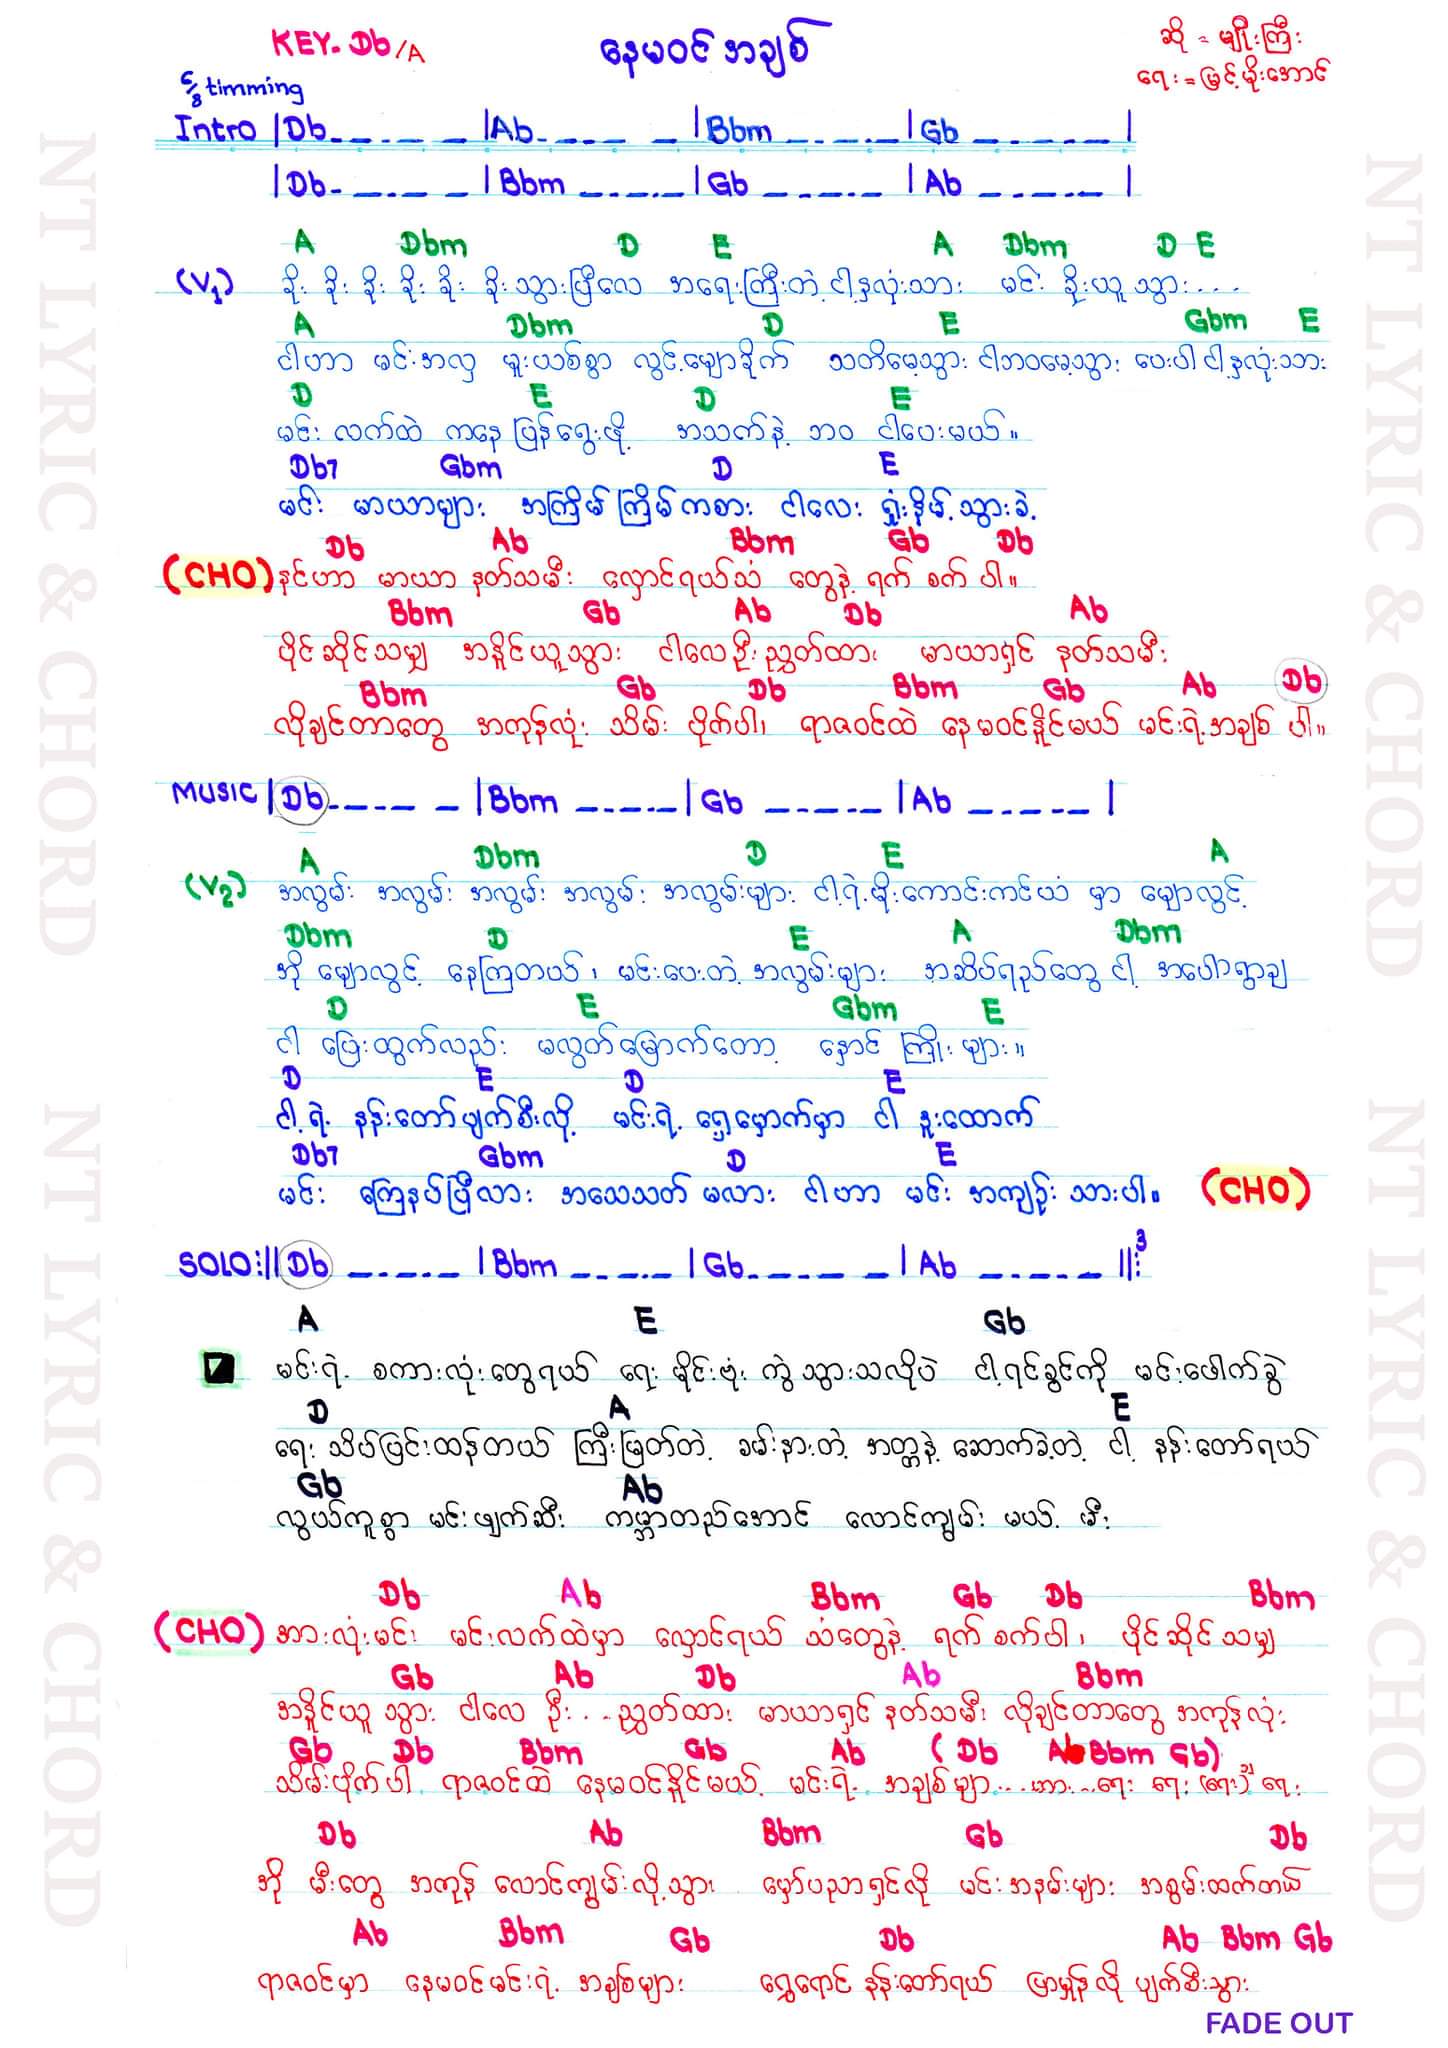 KEY- Db/A
နေမဝင်အချစ်
ဆို = မျိုးကြီး
ရေး = မြင့်မိုးအောင်
6/8 timming
Intro |Db_ _ _ _ _ |Ab_ _ _ _ _ |Bbm _ _ _ _ _ |Gb _ _ _ _ _ |
|Db_ _ _ _ _ |Bbm _ _ _ _ _ |Gb _ _ _ _ _ |Ab _ _ _ _ _ |
A Dbm D E A Dbm D E
(V1) ခိုး ခိုး ခိုး ခိုး ခိုး ခိုးသွားပြီလေ အရေးကြီးတဲ့ ငါ့နှလုံးသား မင်း ခိုးယူသွား....
A Dbm D E Gbm E
ငါဟာ မင်းအလှ မူးယစ်စွာ လွင့်မျောခိုက် သတိမေ့သွား ငါဘဝမေ့သွား ပေးပါ ငါ့နှလုံးသား
D E D E
မင်း လက်ထဲ ကနေ ပြန်ရွေးဖို့ အသက်နဲ့ ဘဝ ငါပေးမယ်။
Db7 Gbm D E
မင်း မာယာများ အကြိမ်ကြိမ်ကစား ငါလေး ရှုံးနိမ့်သွားခဲ့
Db Ab Bbm Gb Db
(CHO) နင်ဟာ မာယာ နတ်သမီး လှောင်ရယ်သံ တွေနဲ့ ရက် စက် ပါ။
Bbm Gb Ab Db Ab
ပိုင်ဆိုင်သမျှ အနိုင်ယူသွား ငါလေဦးညွှတ်ထား မာယာရှင် နတ်သမီး
Bbm Gb Db Bbm Gb Ab Db
လိုချင်တာတွေ အကုန်လုံး သိမ်း ပိုက်ပါ၊ ရာဇဝင်ထဲ နေမဝင်နိုင်မယ် မင်းရဲ့အချစ် ပါ။
MUSIC |Db_ _ _ _ _ |Bbm _ _ _ _ _ |Gb _ _ _ _ _ |Ab _ _ _ _ _ |
A Dbm D E A
(V2) အလွမ်း အလွမ်း အလွမ်း အလွမ်း အလွမ်းများ ငါ့ရဲ့မိုးကောင်းကင်ယံ မှာ မျောလွင့်
Dbm D E A Dbm
အို မျောလွင့် နေကြတယ်၊ မင်းပေးတဲ့ အလွမ်းများ အဆိပ်ရည်တွေ ငါ့ အပေါ်ရွာချ
D E Gbm E
ငါ ပြေးထွက်လည်း မလွတ်မြောက်တော့ နှောင် ကြိုး များ။
D E D E
ငါ့ ရဲ့ နန်းတော်ပျက်စီးလို့ မင်းရဲ့ ရှေ့မှောက်မှာ ငါ ဒူးထောက်
Db7 Gbm D E
မင်း ကျေနပ်ပြီလား အသေသတ် မလား ငါဟာ မင်း အကျဉ်း သားပါ။ (CHO)
SOLO:||Db _ _ _ _ _ |Bbm _ _ _ _ _ |Gb_ _ _ _ _ |Ab _ _ _ _ _ ||:3
A E Gb
မင်းရဲ့ စကားလုံးတွေရယ် ရေ မိုင်းဗုံး ကွဲ သွားသလိုပဲ ငါ့ရင်ခွင်ကို မင်းဖေါက်ခွဲ
D A E
ရေး သိပ်ပြင်းထန်တယ် ကြီးမြတ်တဲ့ ခမ်းနားတဲ့ အတ္တနဲ့ ဆောက်ခဲ့တဲ့ ငါ့ နန်းတော်ရယ်
Gb Ab
လွယ်ကူစွာ မင်းဖျက်ဆီး ကမ္ဘာတည်အောင် လောင်ကျွမ်း မယ့် မီး
Db Ab Bbm Gb Db Bbm
(CHO) အားလုံးမင်း မင်းလက်ထဲမှာ လှောင်ရယ် သံတွေနဲ့ ရက် စက်ပါ၊ ပိုင်ဆိုင် သမျှ
Gb Ab Db Ab Bbm
အနိုင်ယူ သွား ငါလေ ဦး...ညွှတ်ထား မာယာရှင် နတ်သမီး လိုချင်တာတွေ အကုန်လုံး
Gb Db Bbm Gb Ab (Db Ab Bbm Gb)
သိမ်းပိုက်ပါ ရာဇဝင်ထဲ နေမဝင်နိုင်မယ့် မင်းရဲ့ အချစ်များ...ဟား...ရေး ရေး (ရေး) ရေး
Db Ab Bbm Gb Db
အို မီးတွေ အကုန် လောင်ကျွမ်းလို့သွား မှော်ပညာရှင်လို မင်းအနမ်းများ အစွမ်းထက်တယ်
Ab Bbm Gb Db Ab Bbm Gb
ရာဇဝင်မှာ နေမဝင်မင်းရဲ့ အချစ်များ ရွှေရောင် နန်းတော်ရယ် ပြာမှုန်လို ပျက်စီးသွား
FADE OUT
NT LYRIC & CHORD
NT LYRIC & CHORD
NT LYRIC & CHORD
NT LYRIC & CHORD